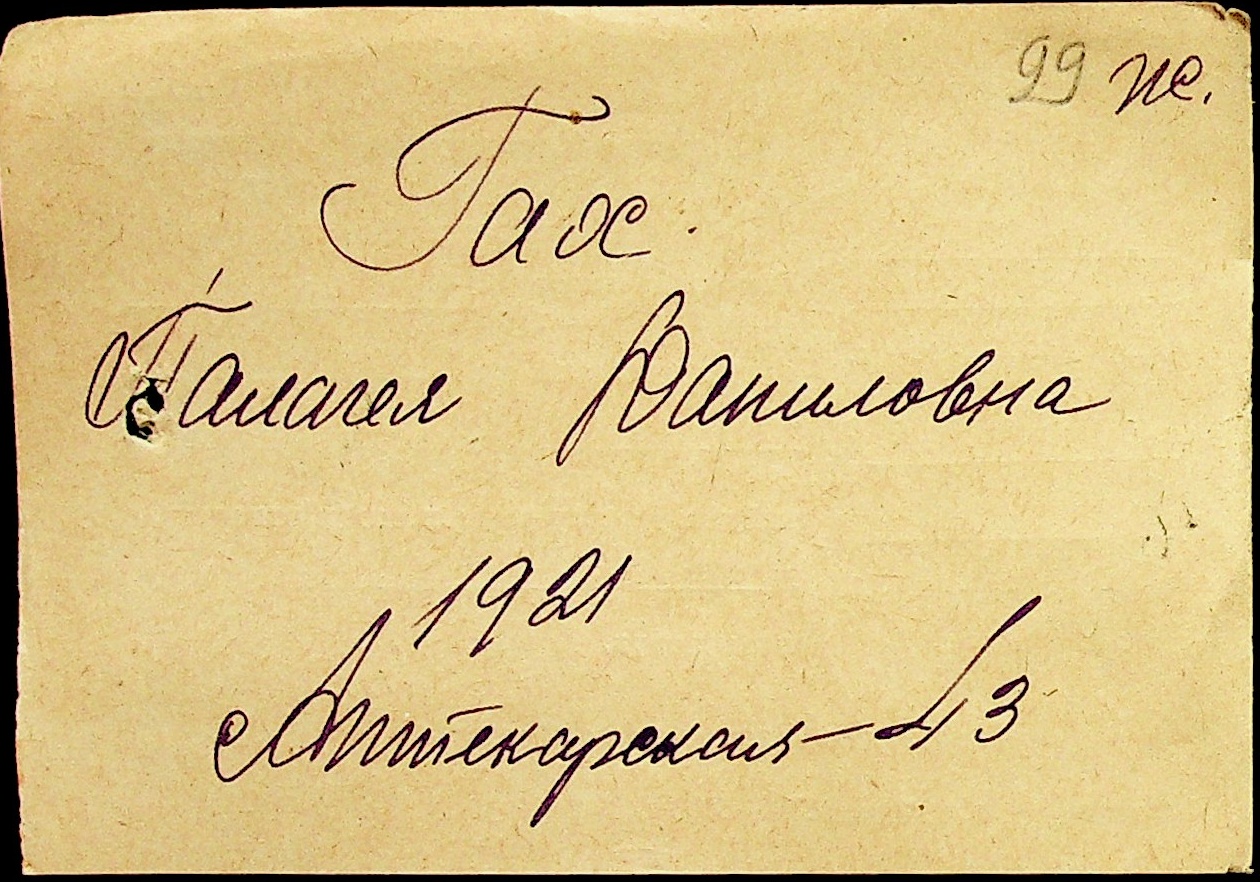 29 ж.
Гах.
Палагея Даниловна
1921
Аптекарская - 43